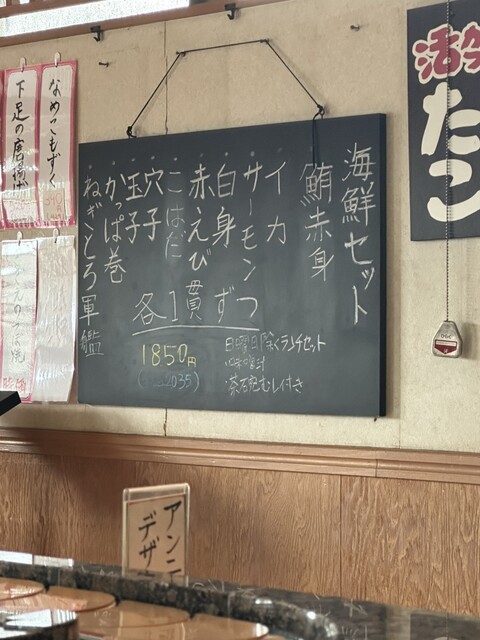 海鮮セット
鮪赤身
イカ
サーモン
白身
赤えび
こはだ
穴子
玉子
かっぱ巻
ねぎとろ軍艦
各1貫ずつ
1850円
日曜日除くランチセット
・味噌汁
・茶碗むし付き
たこ
なめこもずく
下足の唐揚げ
アンニ
デザ